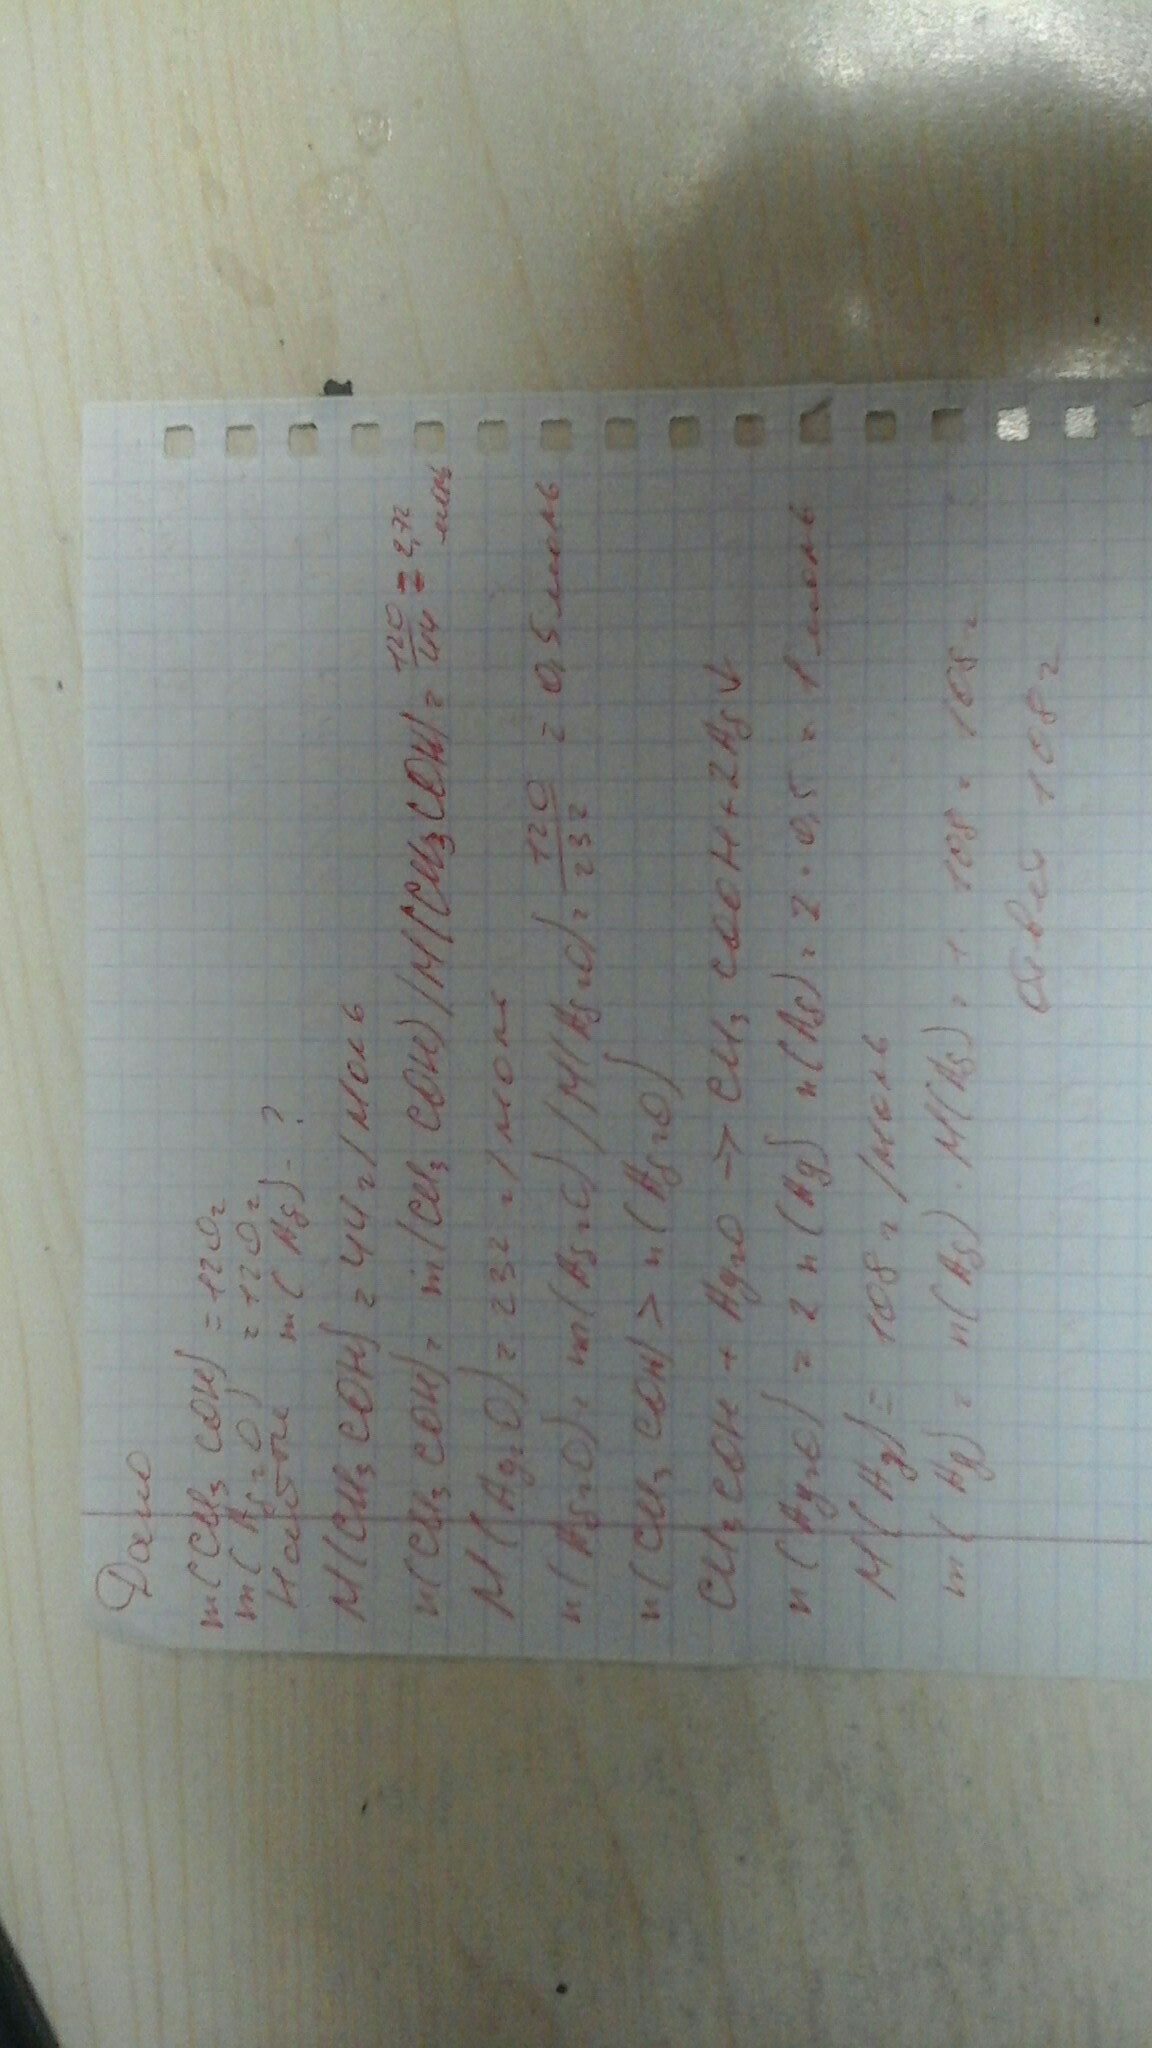 Дано
m(CH3COH) = 120г
m(Ag2O) = 120г
Найти m(Ag) - ?
M(CH3COH) = 44г/моль
n(CH3COH) = m(CH3COH)/M(CH3COH) = 120/44 = 2,72 моль
M(Ag2O) = 232г/моль
n(Ag2O) = m(Ag2O)/M(Ag2O) = 120/232 = 0,5 моль
n(CH3COH > n(Ag2O)
CH3COH + Ag2O → CH3COOH + 2Ag↓
n(Ag2O) = 2n(Ag) n(Ag) = 2·0,5 = 1 моль
M(Ag) = 108г/моль
m(Ag) = n(Ag)·M(Ag) = 1·108 = 108г
Ответ 108г